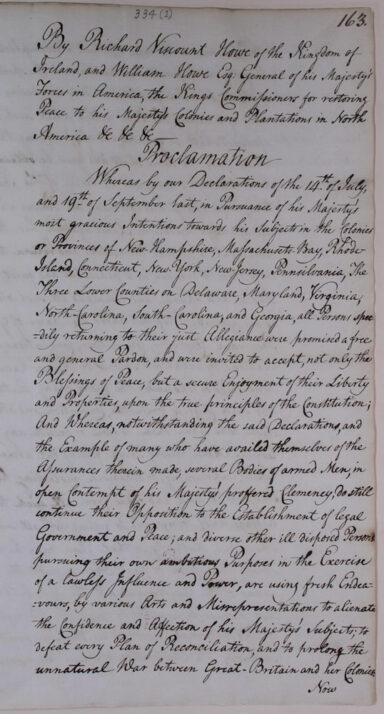 334 (2)
163.
By Richard Viscount Howe of the Kingdom of
Ireland, and William Howe Esq. General of his Majesty's
Forces in America, the Kings Commissioners for restoring
Peace to his Majesty's Colonies and Plantations in North
America &c &c &c
Proclamation
Whereas by our Declarations of the 14th of July,
and 19th of September last, in Pursuance of his Majesty's
most gracious Intentions towards his Subjects in the Colonies
or Provinces of New Hampshire, Massachusets Bay, Rhode
Island, Connecticut, New York, New Jersey, Pennsilvania, The
Three Lower Counties on Delaware, Maryland, Virginia,
North-Carolina, South-Carolina, and Georgia, all Persons spee-
dily returning to their just Allegiance were promised a free
and general Pardon, and were invited to accept, not only the
Blessings of Peace, but a secure Enjoyment of their Liberty
and Properties, upon the true principles of the Constitution;
And Whereas, notwithstanding the said Declarations, and
the Example of many who have availed themselves of the
Assurances therein made, several Bodies of armed Men, in
open Contempt of his Majesty's proffered Clemency, do still
continue their Opposition to the Establishment of legal
Government and Peace; and diverse other ill disposed Persons
pursuing their own ambitious Purposes in the Exercise
of a lawless Influence and Power, are using fresh Endea-
vours, by various Arts and Misrepresentations to alienate
the Confidence and Affection of his Majesty's Subjects; to
defeat every Plan of Reconciliation, and to prolong the
unnatural War between Great-Britain and her Colonies
Now